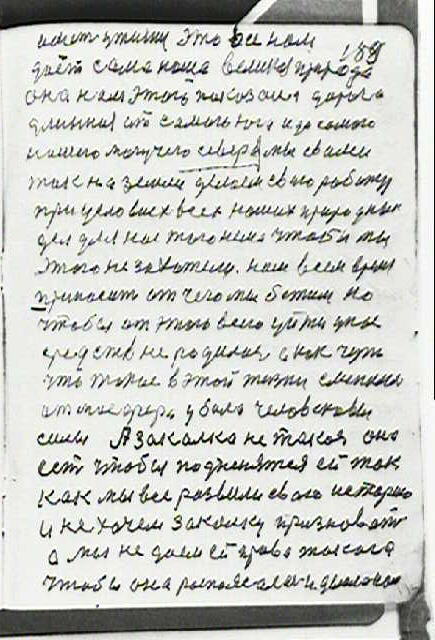 159
имет у жизни это все нам
даёт сама наша великая природа
она нам этого показала дорога
длинная от самого юга и до самого
нашего могучего севера мы свами
так на земли делаем свою работу
при условиях всех наших природных
дел для нас того нема чтоб и мы
этого не захотели. нам всем время
приносит от чего мы бежим но
чтобы от этого всего уйти у нас
средств не родилося а как чуть
что такое в этой жизни
убало человеческие
силы А закалка не такоя она
ест чтобы подчинятся ей так
как мы все развили свою историю
и не хочем закалку призновать
а мы не даем ей права такого
чтобы она распоясалась и делала